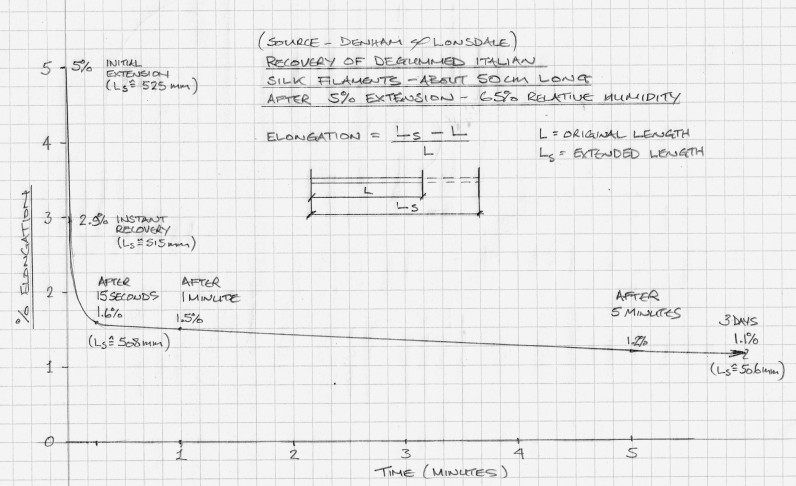 (SOURCE - DENHAM & LONSDALE)
RECOVERY OF DEGUMMED ITALIAN
SILK FILAMENTS - ABOUT 50CM LONG
AFTER 5% EXTENSION - 65% RELATIVE HUMIDITY
ELONGATION = Ls - L
L
L = ORIGINAL LENGTH
Ls = EXTENDED LENGTH
L
Ls
% ELONGATION
5
4
3
2
1
0
5% INITIAL
EXTENSION
(Ls ≙ 525 mm)
2.9% INSTANT
RECOVERY
(Ls ≙ 515mm)
AFTER
15 SECONDS
1.6%
(Ls ≙ 508mm)
AFTER
1 MINUTE
1.5%
AFTER
5 MINUTES
1.2%
3 DAYS
1.1%
(Ls ≙ 506mm)
1
2
3
4
5
TIME (MINUTES)